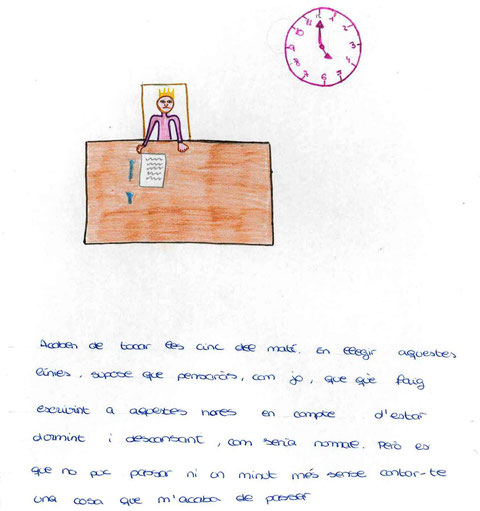 Acaben de tocar les cinc del matí. En llegir aquestes
línies, supose que pensaràs, com jo, que què faig
escrivint a aquestes hores en compte d'estar
dormint i descansant, com seria normal. Però es
que no puc passar ni un minut més sense contar-te
una cosa que m'acaba de passar